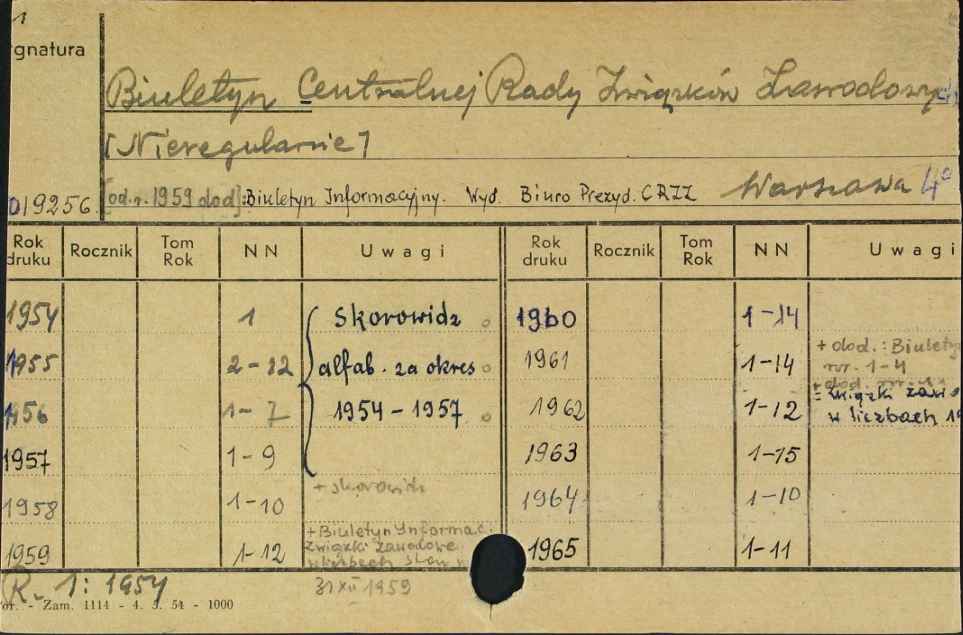 1
gnatura
Biuletyn Centralnej Rady Związków Zawodowych
[Nieregularnie]
019256. [od r. 1959 dod.]: Biuletyn Informacyjny. Wyd. Biuro Prezyd. CRZZ Warszawa 4°
Rok druku Rocznik Tom Rok NN Uwagi Rok druku Rocznik Tom Rok NN Uwagi
1954 1 Skorowidz 1960 1-14
1955 2-12 alfab. za okres 1961 1-14 + dod.: Biulety
nr. 1-4
+ dod. nr.
1956 1-7 1954-1957 1962 1-12 = Związki zawo
w liczbach 19
1957 1-9 1963 1-15
+ skorowidz
1958 1-10 1964 1-10
1959 1-12 + Biuletyn Informac. 1965 1-11
Związki zawodowe
w liczbach stan
31 XII 1959
R. 1: 1954
or. - Zam. 1114 - 4. 3. 54 - 1000